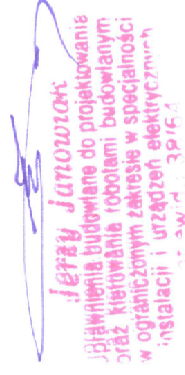 Jerzy Janowiak
Uprawnienia budowlane do projektowania
oraz kierowania robotami budowlanymi
w ograniczonym zakresie w specjalności
instalacji i urządzeń elektrycznych